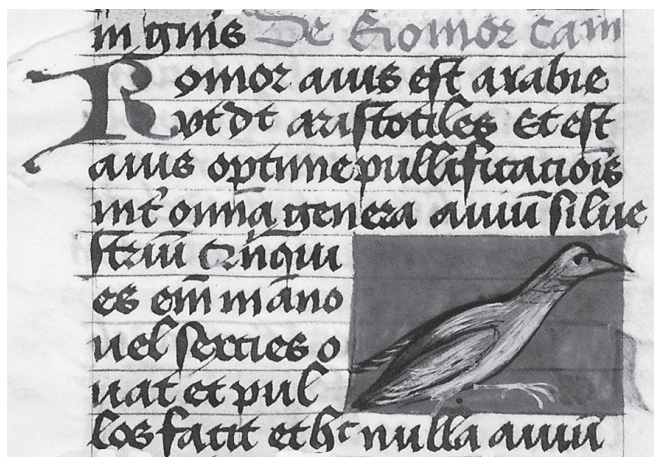 in gnis De Komor Cam
Komor auis est arabie
vt dt aristotiles Et est
auis optime pullificatiōis
int̛ oīnia genera auiū silue
striū Qūqui
es em̄ in āno
uel sexties o
uat et pul
los facit et hͨ nulla auiū